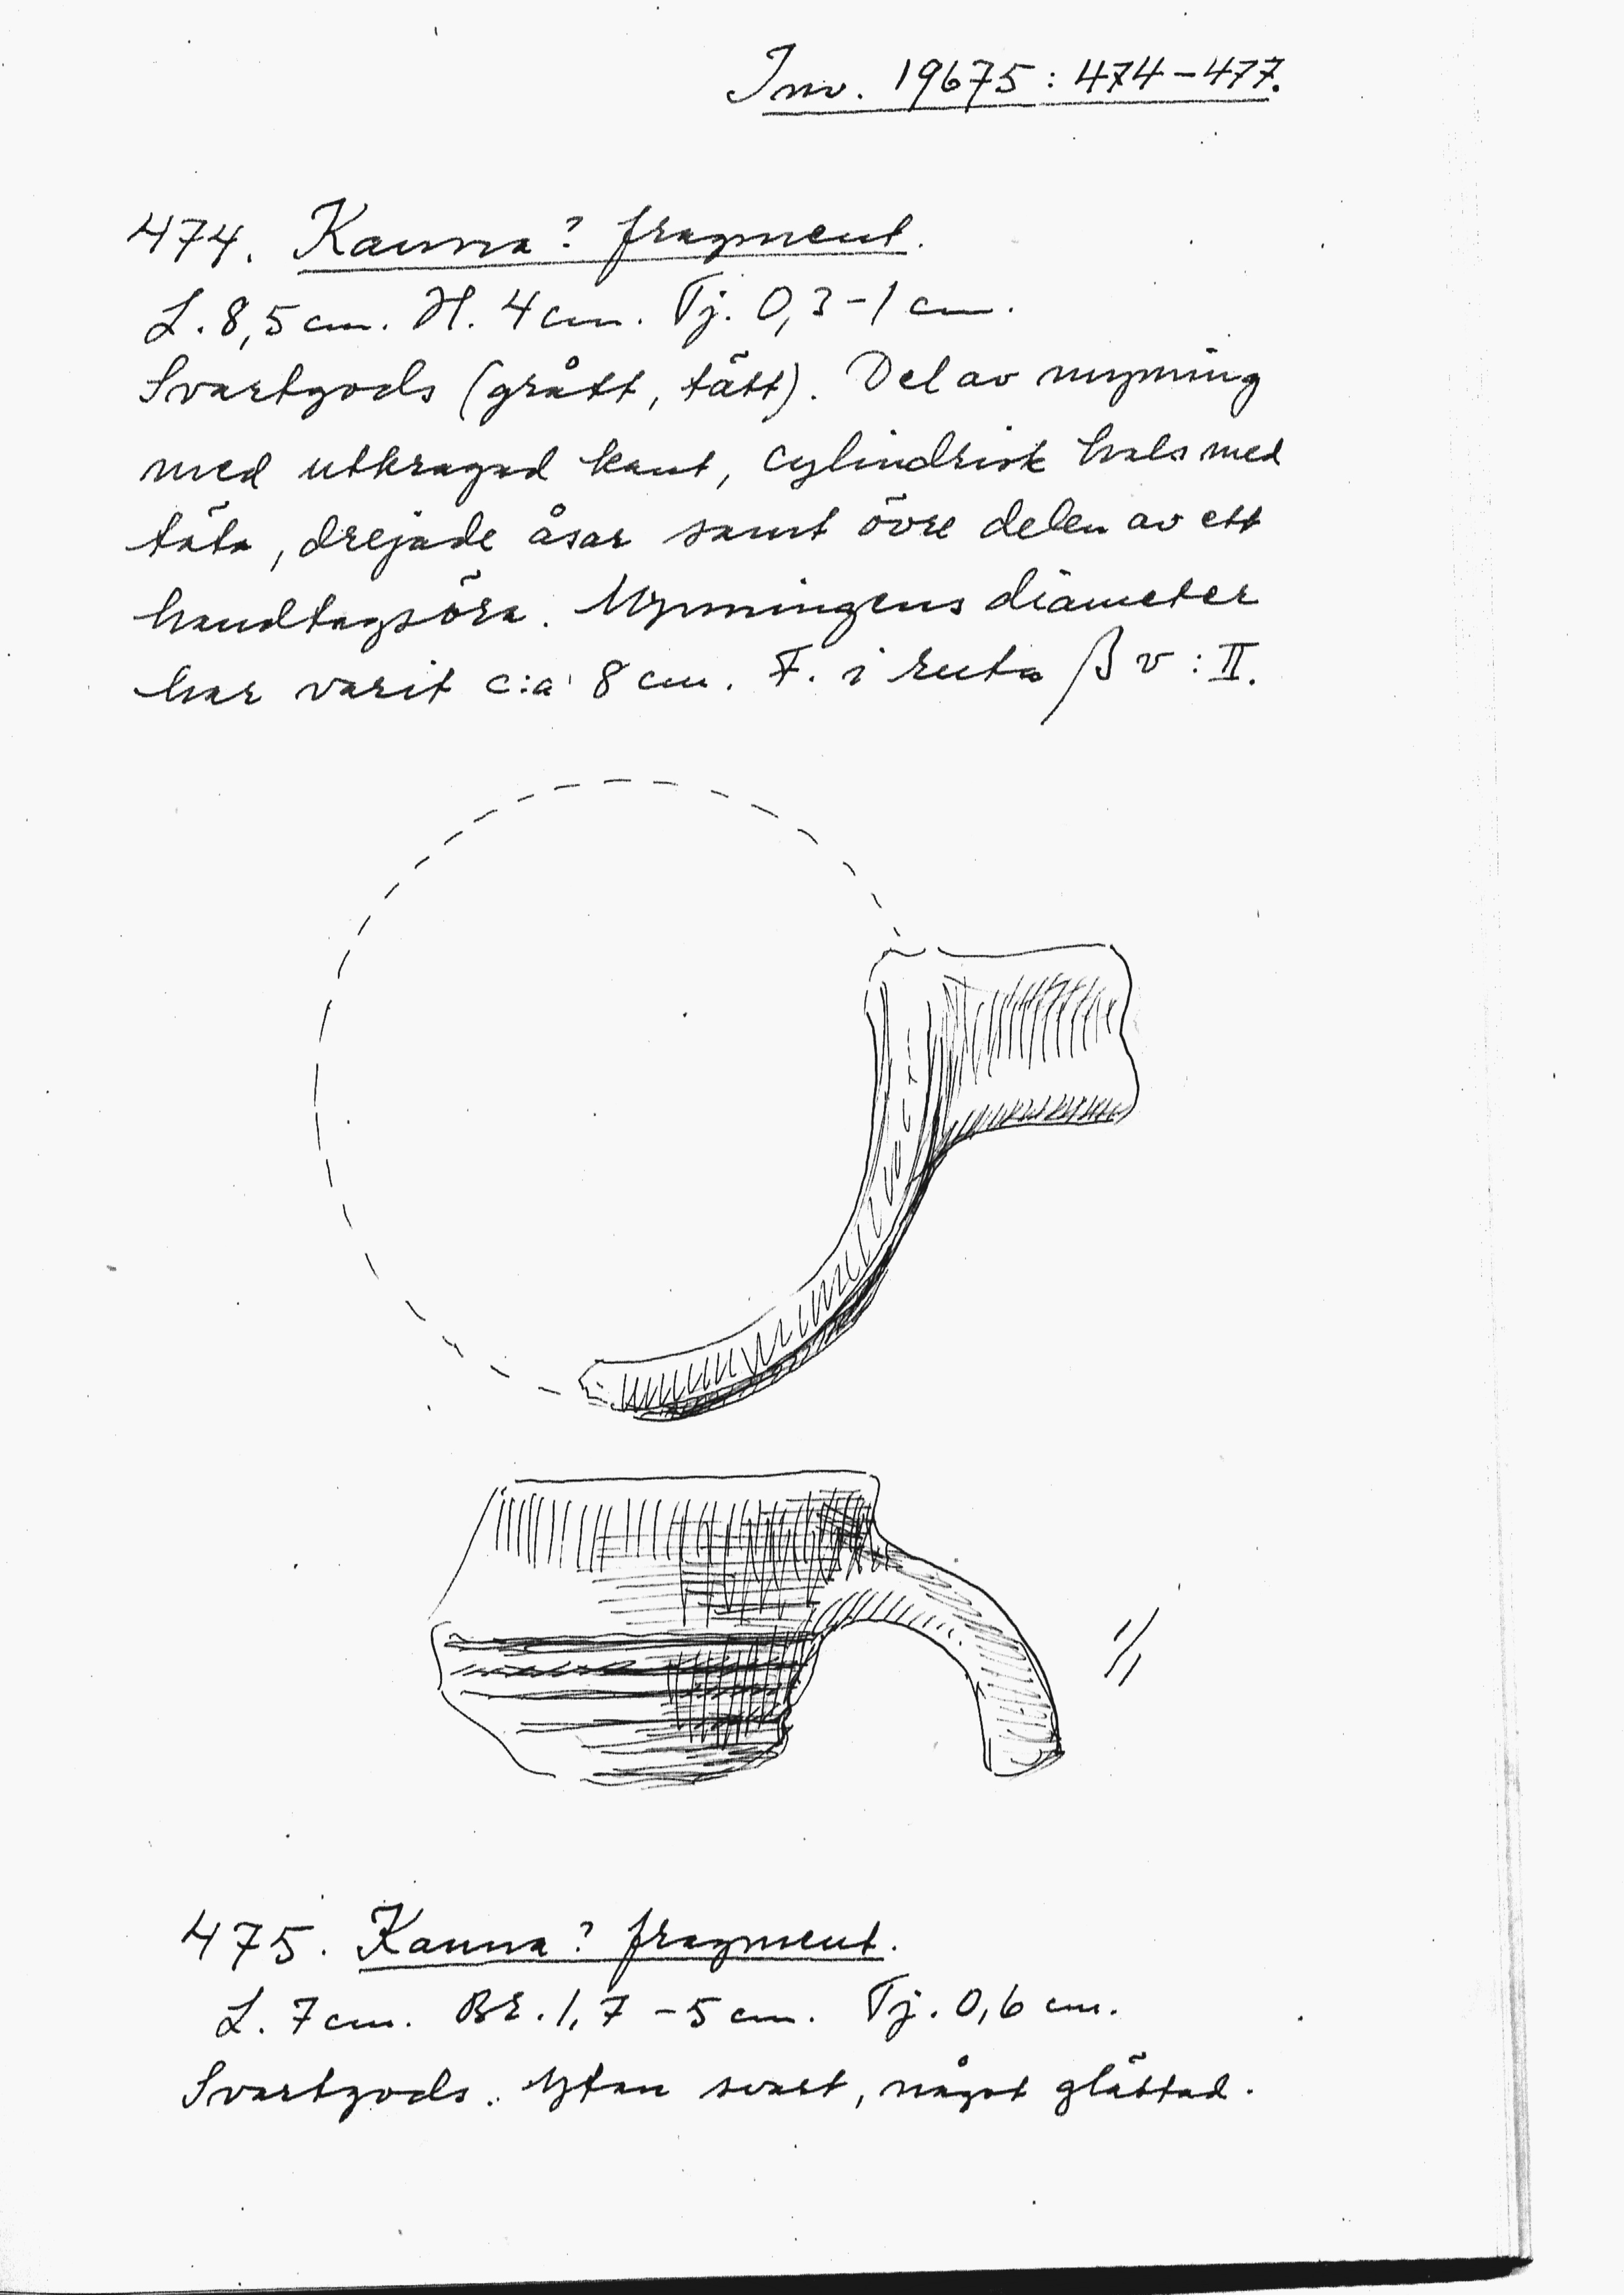 Inv. 19675: 474-477.
474. Kanna? fragment.
L. 8,5 cm. H. 4 cm. Tj. 0,3-1 cm.
Svartgods (grått, tätt). Del av mynning
med utkragad kant, cylindrisk hals med
täta, drejade åsar samt övre delen av ett
handtagsöra. Mynningens diameter
har varit c:a 8 cm. F. i ruta β v: II.
1/1
475. Kanna? fragment.
L. 7 cm. Br. 1,7-5 cm. Tj. 0,6 cm.
Svartgods. Ytan svart, något glättad.